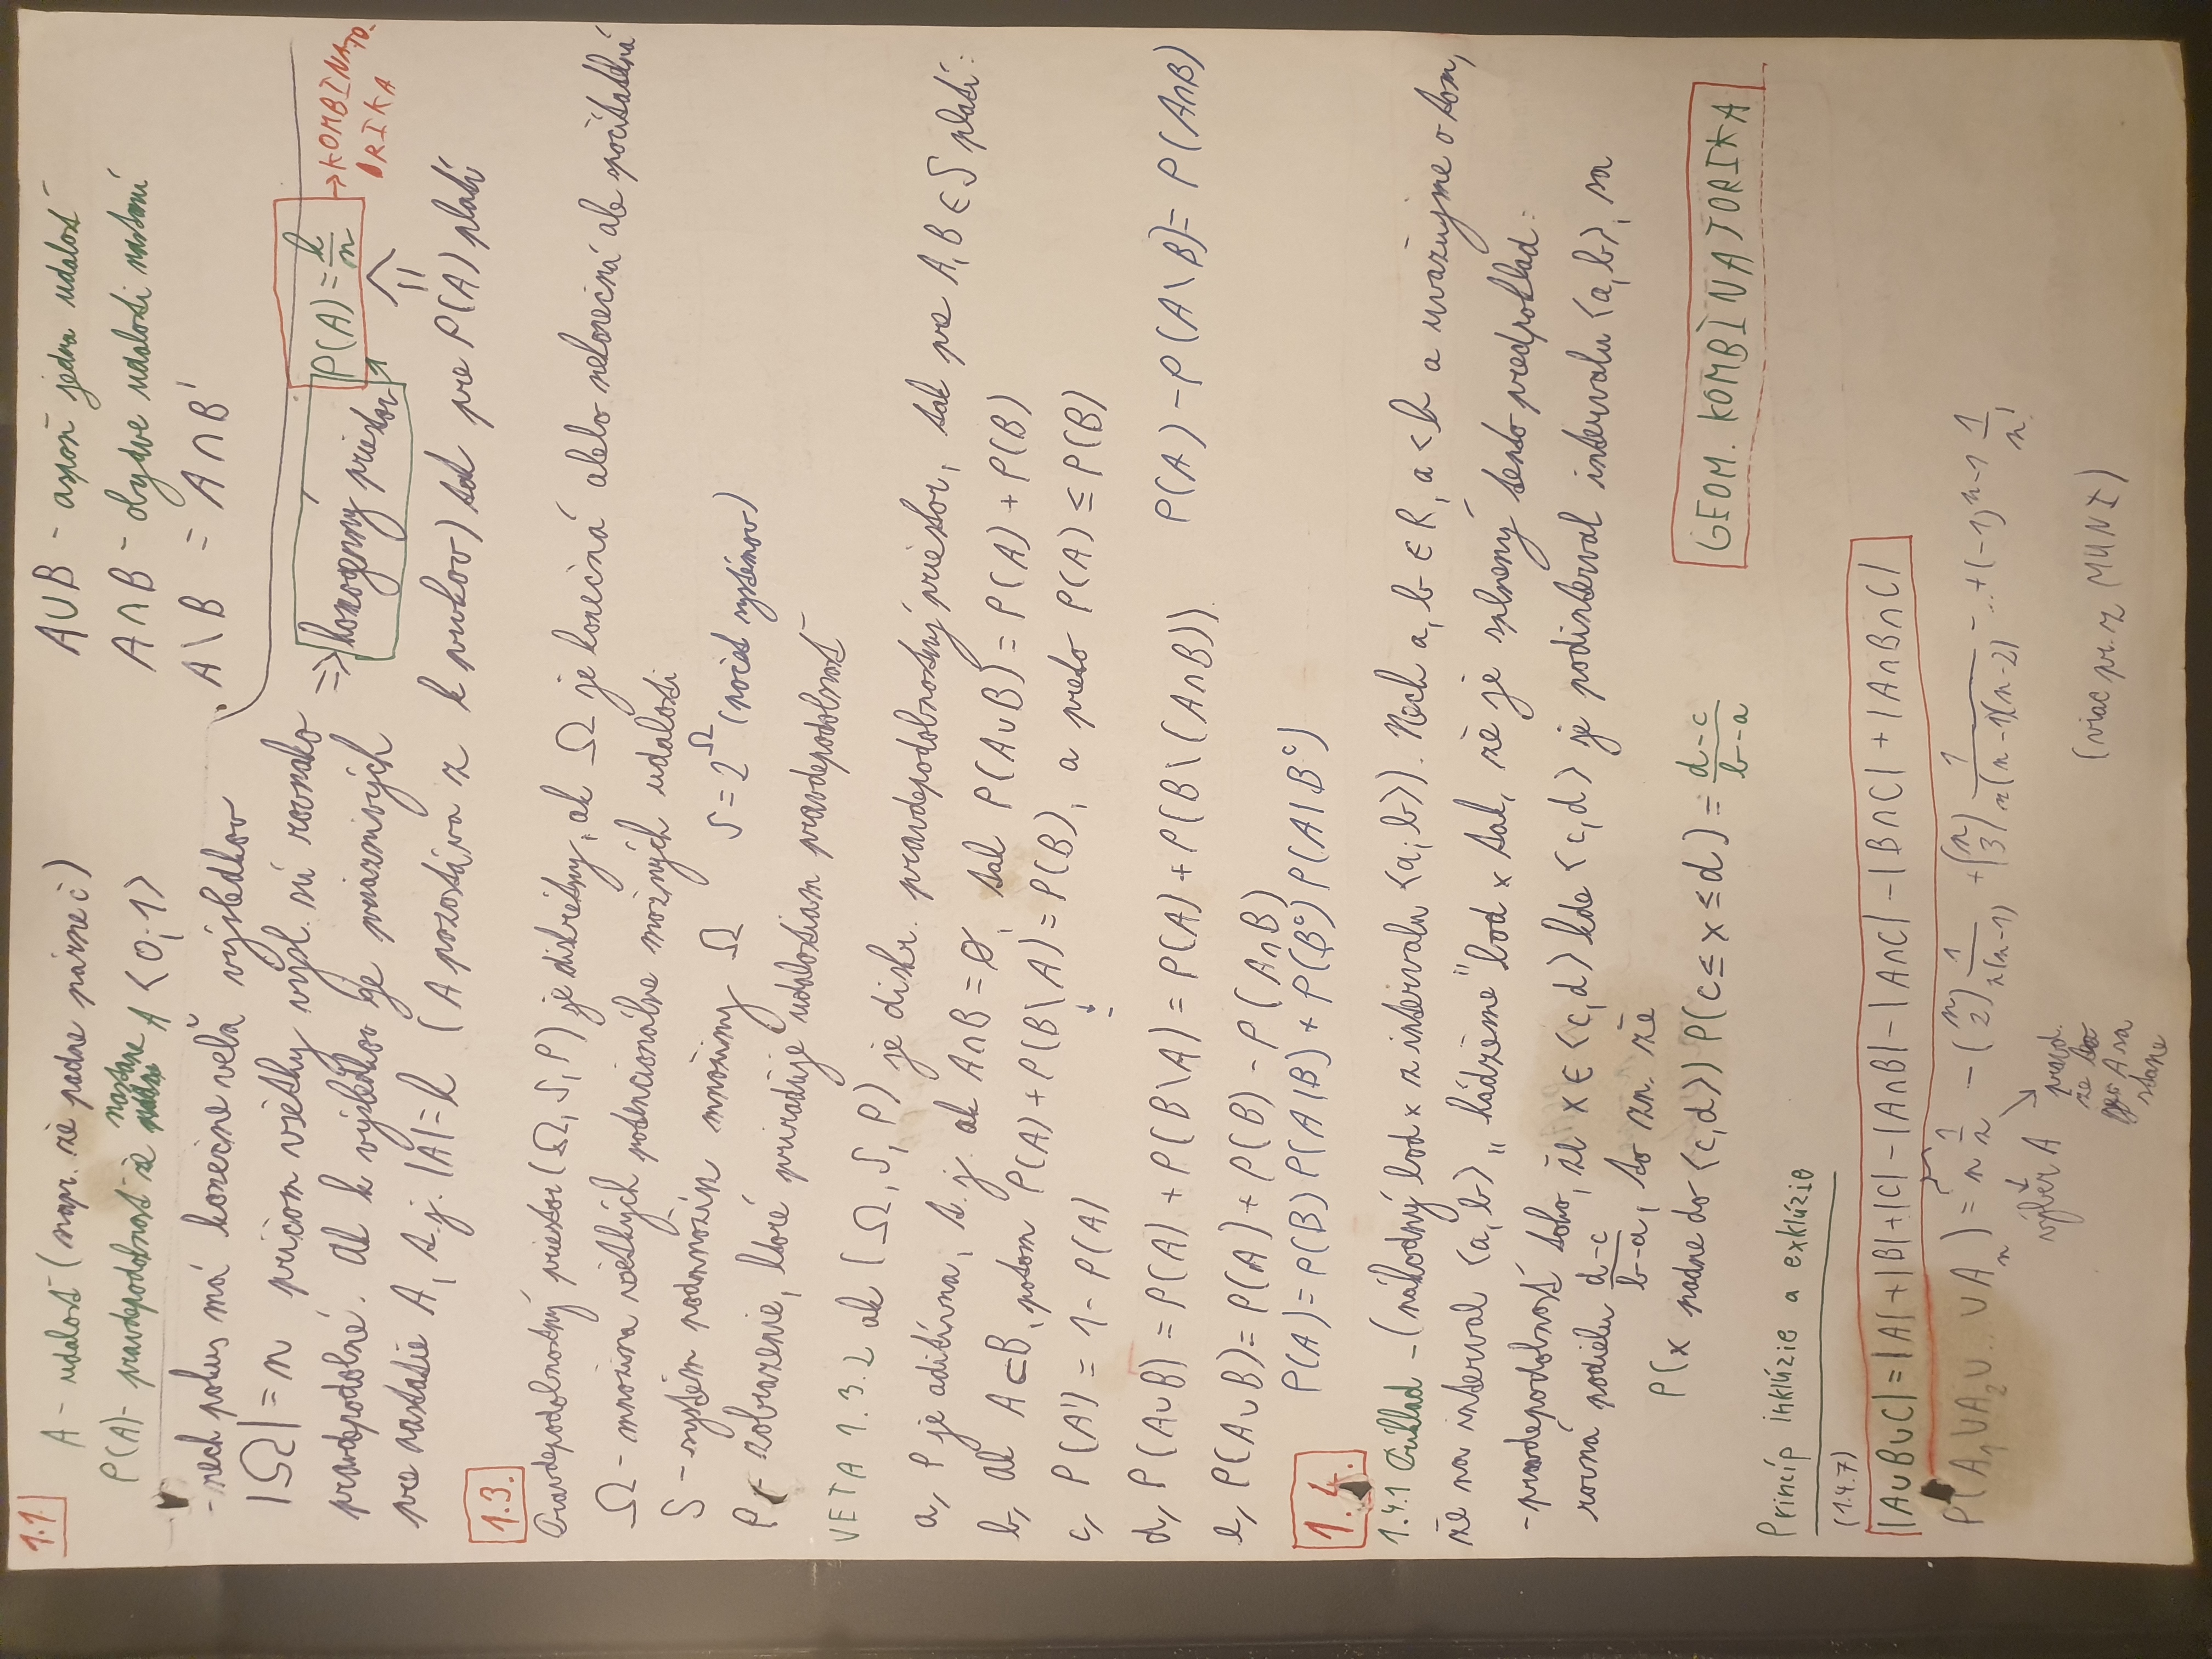 1.1
A - udalosť (napr. že padne párne č)
P(A) - pravdepodobnosť že nastane A <0;1>
A∪B - aspoň jedna udalosť
A∩B - obydve udalosti nastanú
A\B = A∩B'
- nech pokus má konečne veľa výsledkov
|Ω| = n pričom všetky výsl. sú rovnako
pravdepodobné. Ak k výsledkov je priaznivých
pre nastatie A, t.j. |A|=k (A pozostáva z k prvkov) tak pre P(A) platí
=> homogénny priestor
P(A) = k/n → KOMBINATO-
RIKA
1.3.
Pravdepodobnostný priestor (Ω, S, P) je diskrétny, ak Ω je konečná alebo nekonečná ale spočítateľná
Ω - množina všetkých potencionálne možných udalosti
S - systém podmnožín množiny Ω S = 2^Ω (počet systémov)
P - zobrazenie, ktoré priraďuje udalostiam pravdepodobnosť
VETA 1.3.2 ak (Ω, S, P) je diskr. pravdepodobnostný priestor, tak pre A, B ∈ S platí:
a, P je aditívna, t.j. ak A∩B = ∅, tak P(A∪B) = P(A) + P(B)
b, Ak A⊂B, potom P(A) + P(B\A) = P(B), a preto P(A) ≤ P(B)
c, P(A') = 1 - P(A)
d, P(A∪B) = P(A) + P(B\A) = P(A) + P(B\(A∩B)) P(A) - P(A\B) = P(A∩B)
e, P(A∪B) = P(A) + P(B) - P(A∩B)
P(A) = P(B) P(A|B) + P(B^c) P(A|B^c)
1.4.
1.4.1 Príklad - (náhodný bod x z intervalu <a;b>). Nech a, b ∈ R, a < b a uvažujme o tom,
že na interval <a,b> „hádžeme" bod x tak, že je splnený tento predpoklad:
- pravdepodobnosť toho, že x ∈ <c,d> kde <c,d> je podinterval intervalu <a,b>, sa
rovná podielu (d-c)/(b-a), to zn. že
P(x padne do <c,d>) P(c ≤ x ≤ d) = (d-c)/(b-a)
GEOM. KOMBINATORIKA
Princíp inklúzie a exklúzie
(1.4.7)
|A∪B∪C| = |A| + |B| + |C| - |A∩B| - |A∩C| - |B∩C| + |A∩B∩C|
P(A₁∪A₂∪...∪Aₙ) = n 1/n - (n 2) 1/(n(n-1)) + (n 3) 1/(n(n-1)(n-2)) - ... + (-1)^(n-1) 1/n!
výber A
pravd.
že to
A sa
stane
(viac pr. z MUNI)